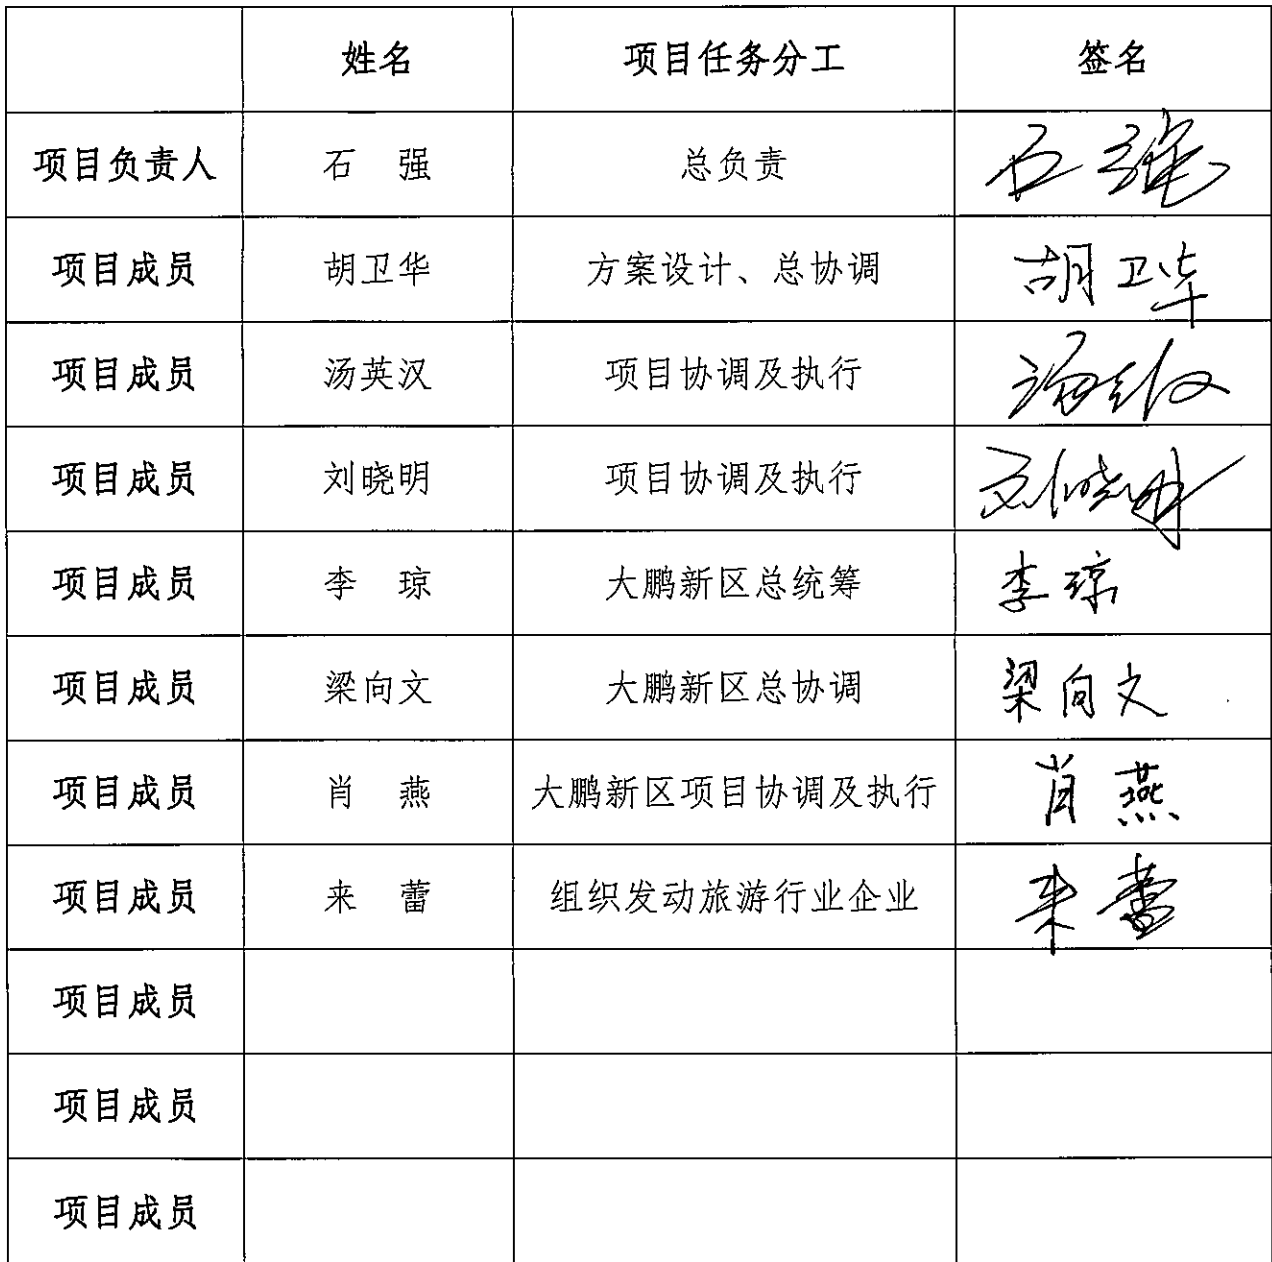 姓名 项目任务分工 签名
项目负责人 石 强 总负责 石强
项目成员 胡卫华 方案设计、总协调 胡卫华
项目成员 汤英汉 项目协调及执行 汤英汉
项目成员 刘晓明 项目协调及执行 刘晓明
项目成员 李 琼 大鹏新区总统筹 李琼
项目成员 梁向文 大鹏新区总协调 梁向文
项目成员 肖 燕 大鹏新区项目协调及执行 肖燕
项目成员 来 蕾 组织发动旅游行业企业 来蕾
项目成员
项目成员
项目成员